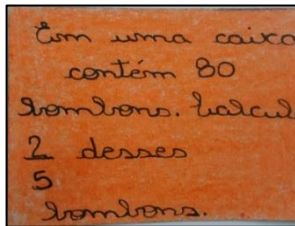 Em uma caixa
contém 80
bombons. Calcul
2 desses
5
bombons.